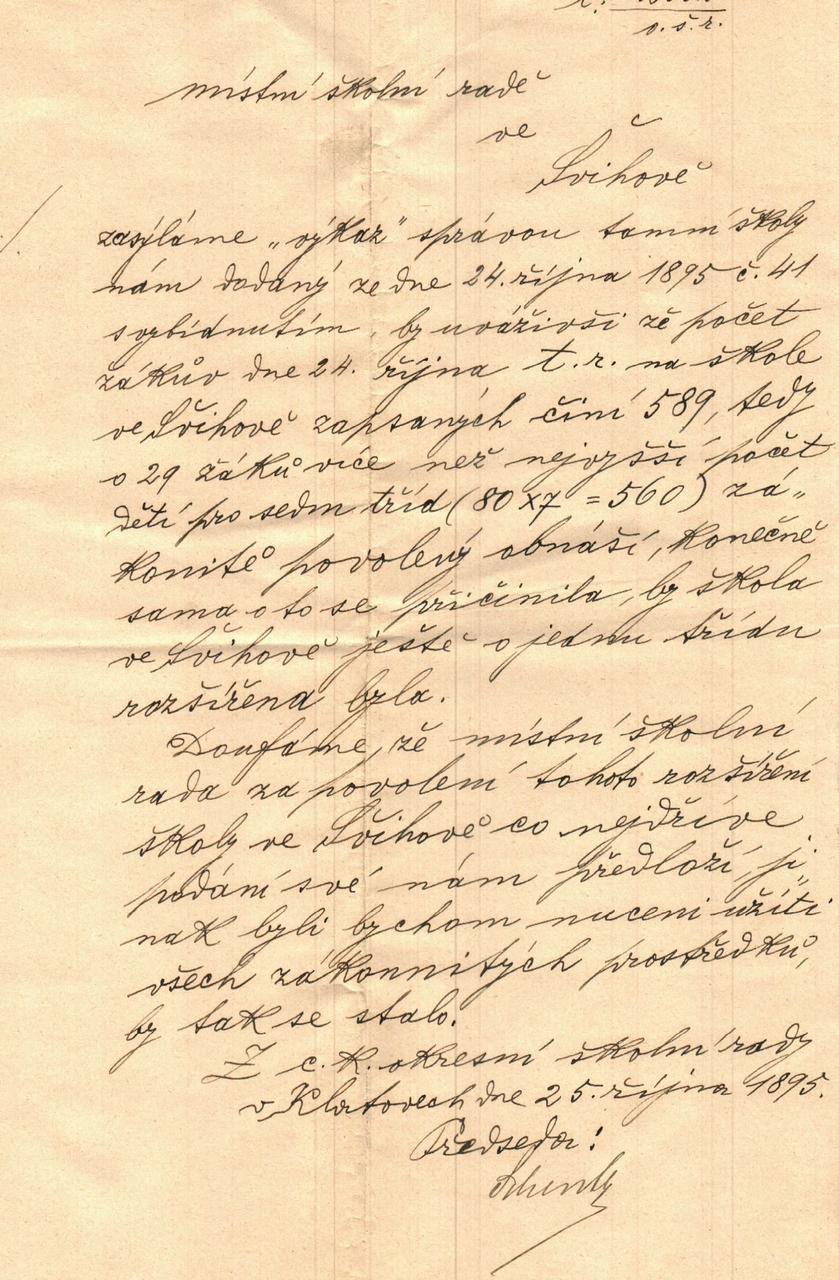 o. š. r.
místní školní radě
ve
Švihově
zasýláme „výkaz“ správou tamní školy
nám dodaný ze dne 24. října 1895 č. 41
s vybídnutím, by uváživši že počet
žákův dne 24. října t. r. na škole
ve Švihově zapsaných činí 589, tedy
o 29 žáků více než nejvyšší počet
dětí pro sedm tříd (80 x 7 = 560) zá„
konitě povolený obnáší, konečně
sama o to se přičinila, by škola
ve Švihově ještě o jednu třídu
rozšířena byla.
Doufáme, že místní školní
rada za povolení tohoto rozšíření
školy ve Švihově co nejdříve
podání své nám předloží, ji„
nak byli bychom nuceni užíti
všech zákonnitých prostředků,
by tak se stalo.
Z c. k. okresní školní rady
v Klatovech dne 25. října 1895.
Předseda: